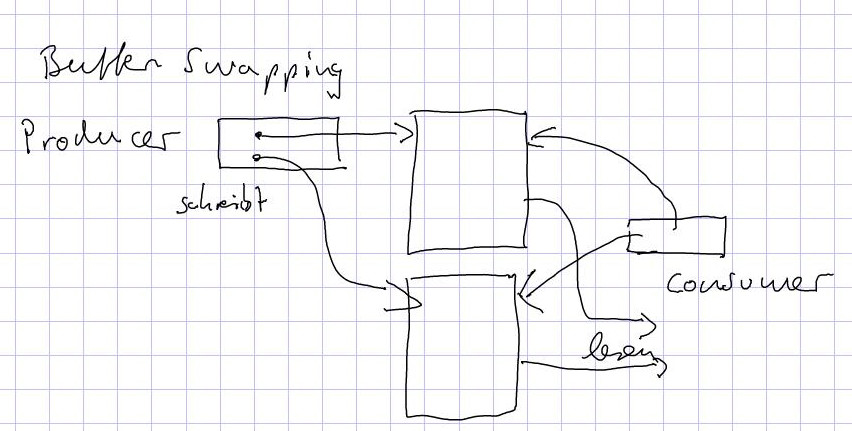 Buffer Swapping
Producer
schreibt
Consumer
lesen